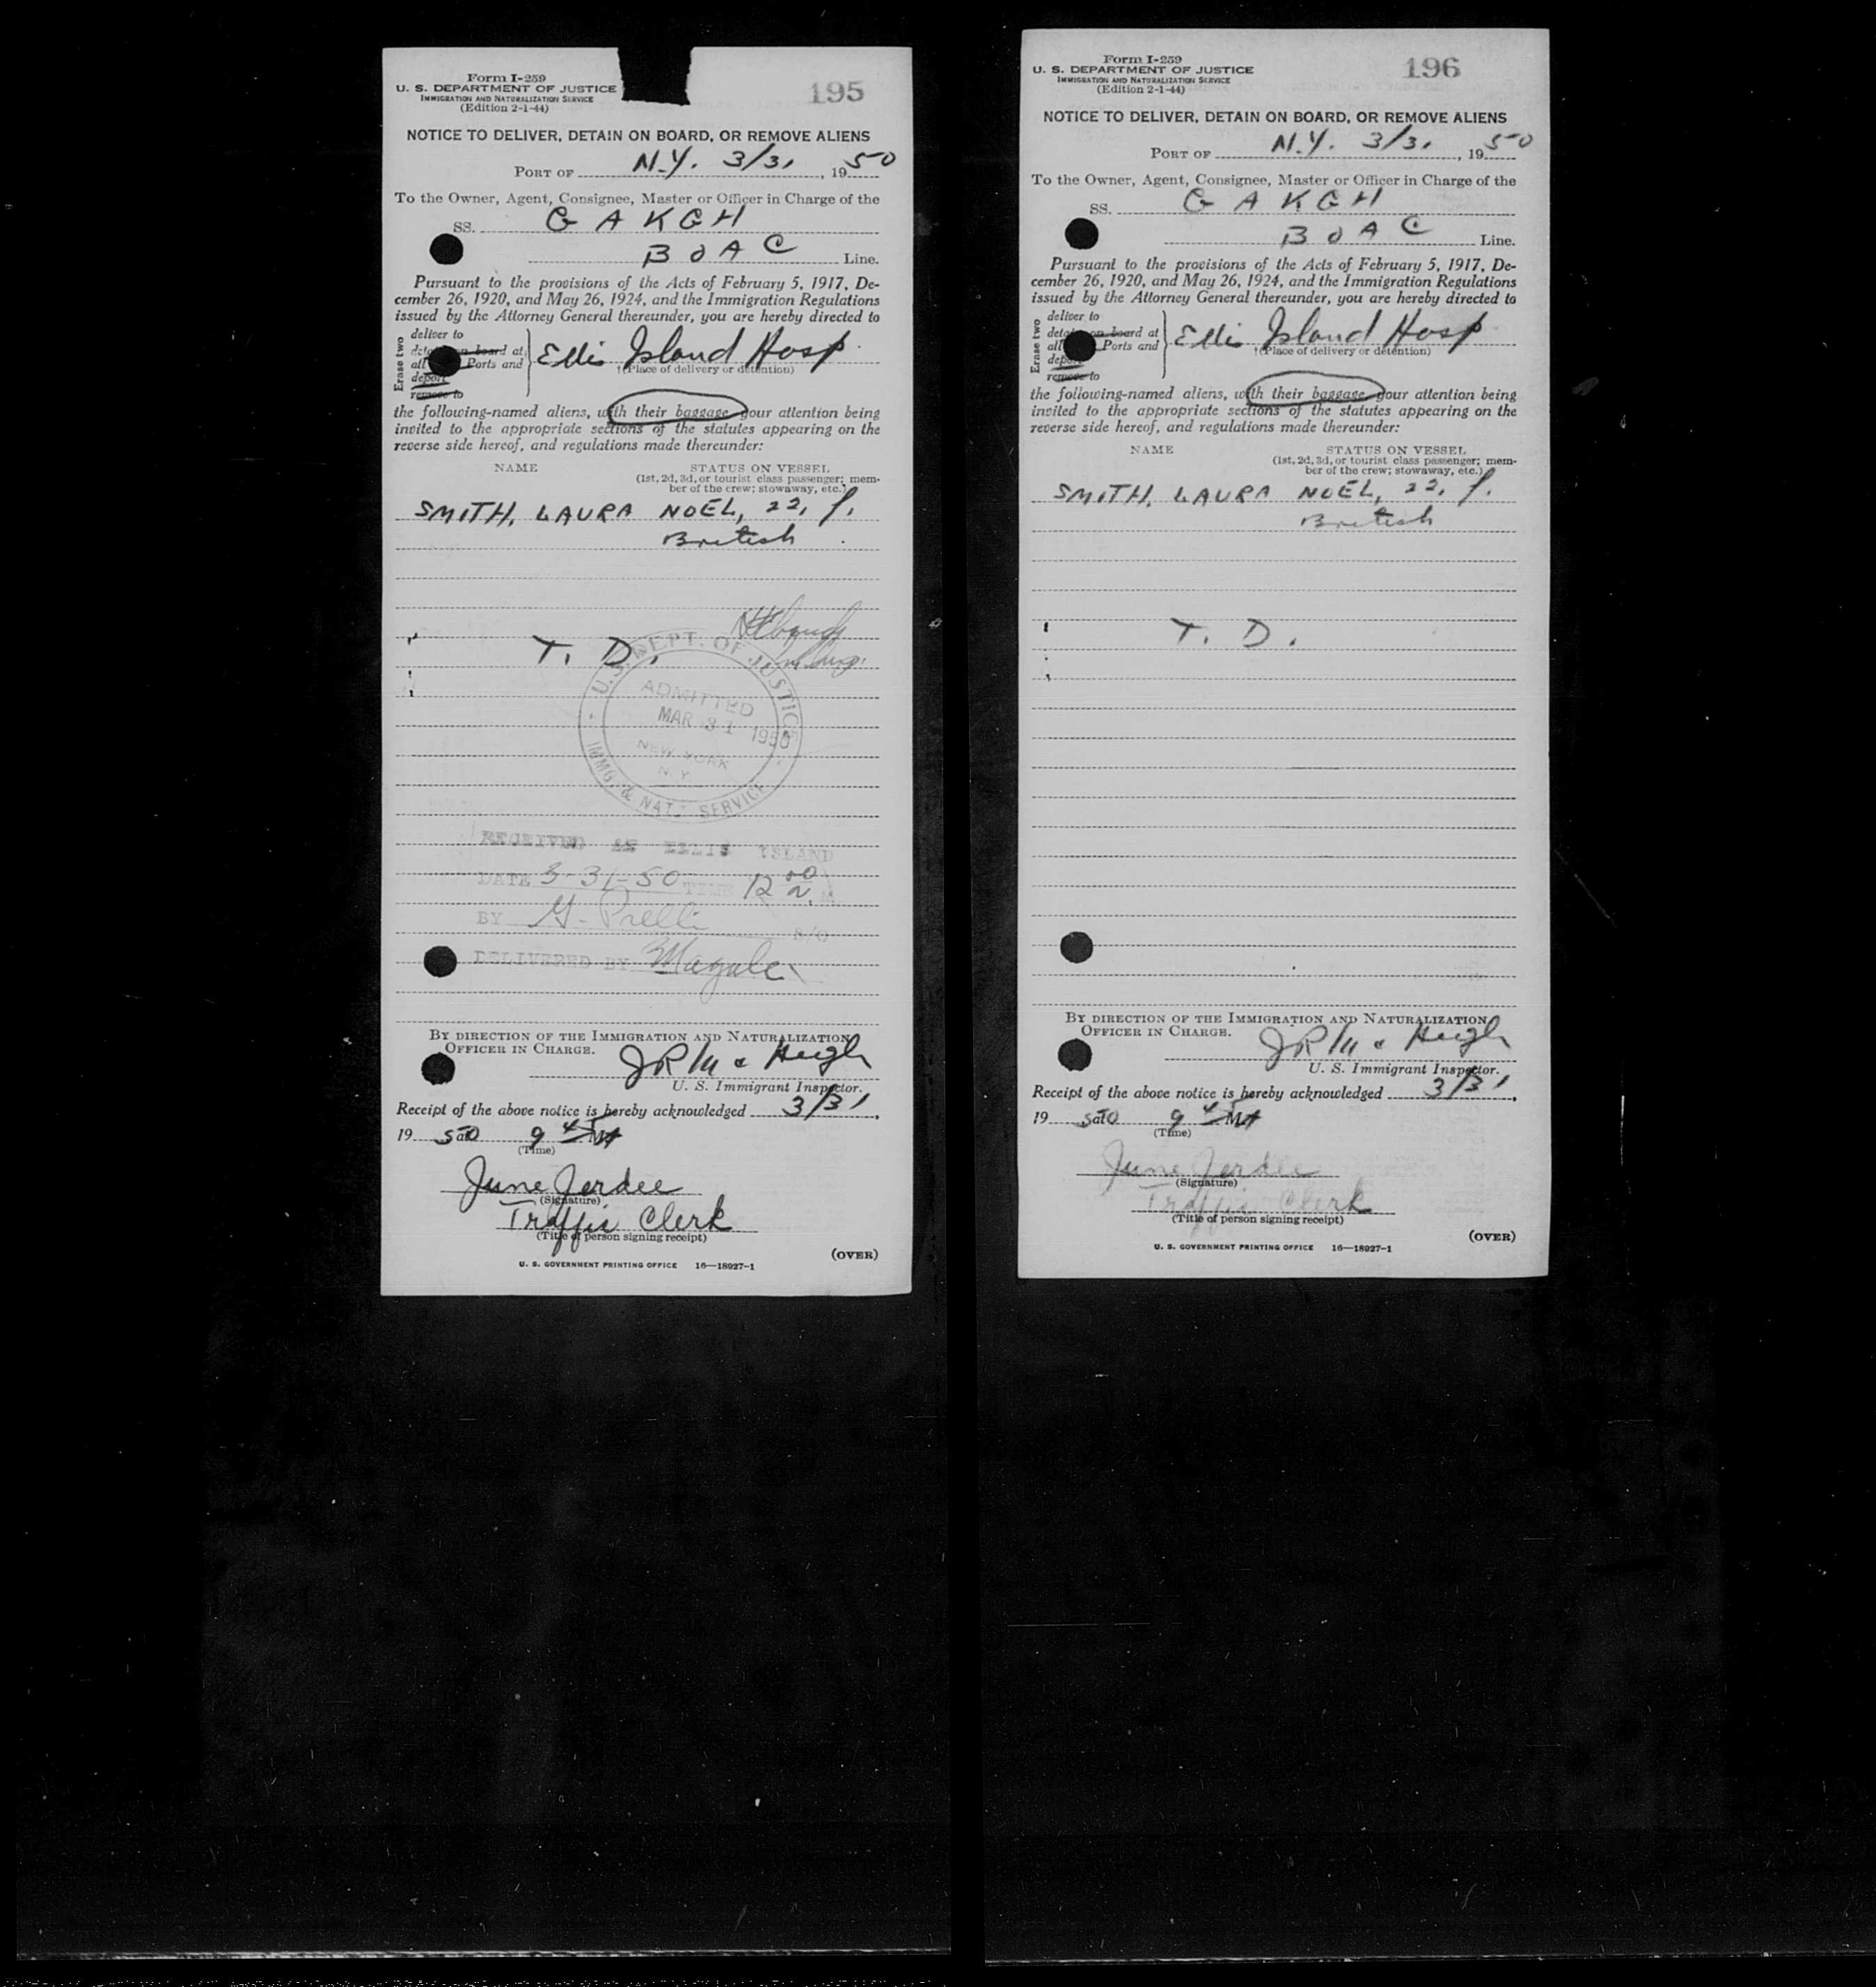 Form I-259
U. S. DEPARTMENT OF JUSTICE
IMMIGRATION AND NATURALIZATION SERVICE
(Edition 2-1-44)
195
NOTICE TO DELIVER, DETAIN ON BOARD, OR REMOVE ALIENS
PORT OF N.Y. 3/31, 1950
To the Owner, Agent, Consignee, Master or Officer in Charge of the
SS. G A K G H
B O A C Line.
Pursuant to the provisions of the Acts of February 5, 1917, De-
cember 26, 1920, and May 26, 1924, and the Immigration Regulations
issued by the Attorney General thereunder, you are hereby directed to
Erase two
deliver to
on board at
all Ports and
deport
remove to
Ellis Island Hosp.
†(Place of delivery or detention)
the following-named aliens, with their baggage your attention being
invited to the appropriate sections of the statutes appearing on the
reverse side hereof, and regulations made thereunder:
NAME STATUS ON VESSEL
(1st, 2d, 3d, or tourist class passenger; mem-
ber of the crew; stowaway, etc.)
SMITH, LAURA NOEL, 22, f.
British
T. D.
U. S. DEPT. OF JUSTICE
ADMITTED
MAR 31 1950
NEW YORK
N. Y.
IMMG. & NAT. SERVICE
RECEIVED AT ELLIS ISLAND
DATE 3-31-50 TIME 12 00 N. M
BY G. Prelli
DELIVERED BY
BY DIRECTION OF THE IMMIGRATION AND NATURALIZATION
OFFICER IN CHARGE.
U. S. Immigrant Inspector.
Receipt of the above notice is hereby acknowledged 3/31,
1950 at 9 45 M
(Time)
June Jerdee
(Signature)
Traffic Clerk
(Title of person signing receipt)
(OVER)
U. S. GOVERNMENT PRINTING OFFICE 16—18927-1
Form I-259
U. S. DEPARTMENT OF JUSTICE
IMMIGRATION AND NATURALIZATION SERVICE
(Edition 2-1-44)
196
NOTICE TO DELIVER, DETAIN ON BOARD, OR REMOVE ALIENS
PORT OF N.Y. 3/31, 1950
To the Owner, Agent, Consignee, Master or Officer in Charge of the
SS. G A K G H
B O A C Line.
Pursuant to the provisions of the Acts of February 5, 1917, De-
cember 26, 1920, and May 26, 1924, and the Immigration Regulations
issued by the Attorney General thereunder, you are hereby directed to
Erase two
deliver to
on board at
all Ports and
deport
remove to
Ellis Island Hosp
†(Place of delivery or detention)
the following-named aliens, with their baggage your attention being
invited to the appropriate sections of the statutes appearing on the
reverse side hereof, and regulations made thereunder:
NAME STATUS ON VESSEL
(1st, 2d, 3d, or tourist class passenger; mem-
ber of the crew; stowaway, etc.)
SMITH, LAURA NOEL, 22, f.
British
T. D.
BY DIRECTION OF THE IMMIGRATION AND NATURALIZATION
OFFICER IN CHARGE.
U. S. Immigrant Inspector.
Receipt of the above notice is hereby acknowledged 3/31,
1950 at 9 45 M
(Time)
June Jerdee
(Signature)
Traffic Clerk
(Title of person signing receipt)
(OVER)
U. S. GOVERNMENT PRINTING OFFICE 16—18927-1